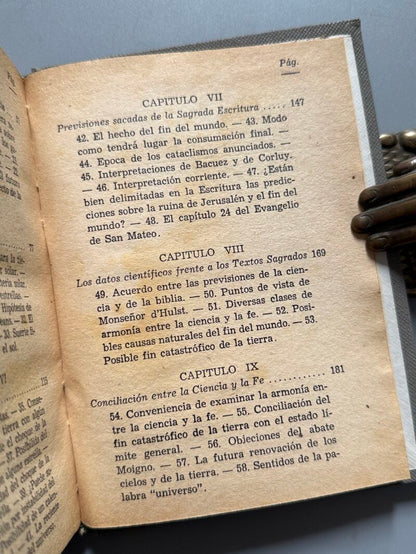 Pág.
CAPITULO VII
Previsiones sacadas de la Sagrada Escritura ..... 147
42. El hecho del fin del mundo. — 43. Modo
como tendrá lugar la consumación final. —
44. Epoca de los cataclismos anunciados. —
45. Interpretaciones de Bacuez y de Corluy.
— 46. Interpretación corriente. — 47. ¿Están
bien delimitadas en la Escritura las predic-
ciones sobre la ruina de Jerusalén y el fin del
mundo? — 48. El capítulo 24 del Evangelio
de San Mateo.
CAPITULO VIII
Los datos científicos frente a los Textos Sagrados 169
49. Acuerdo entre las previsiones de la cien-
cia y de la biblia. — 50. Puntos de vista de
Monseñor d'Hulst. — 51. Diversas clases de
armonía entre la ciencia y la fe. — 52. Posi-
bles causas naturales del fin del mundo. — 53.
Posible fin catastrófico de la tierra.
CAPITULO IX
Conciliación entre la Ciencia y la Fe ............ 181
54. Conveniencia de examinar la armonía en-
tre la ciencia y la fe. — 55. Conciliación del
fin catastrófico de la tierra con el estado lí-
mite general. — 56. Objeciones del abate
Moigno. — 57. La futura renovación de los
cielos y de la tierra. — 58. Sentidos de la pa-
labra "universo".
77
115